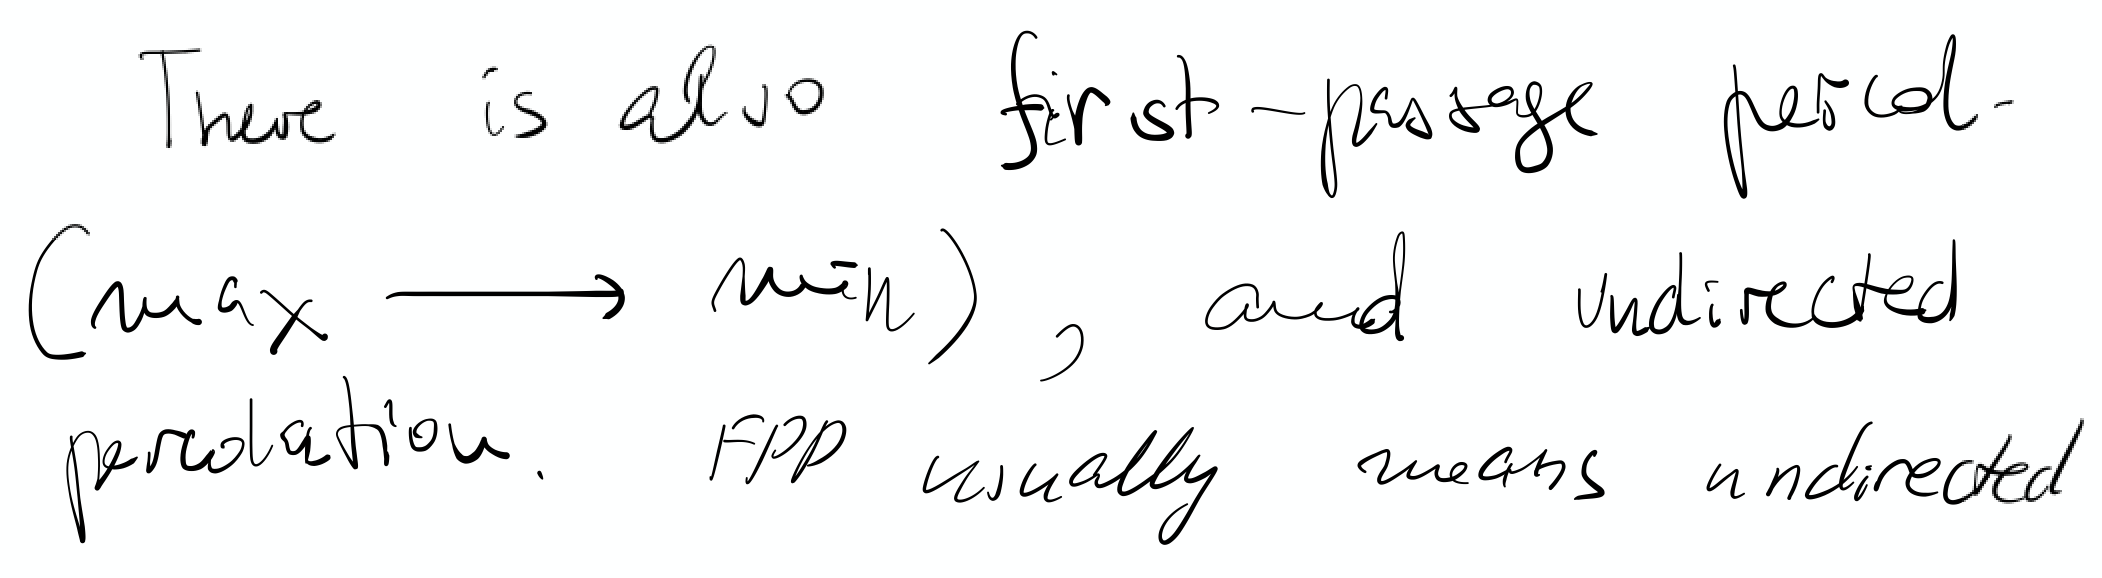 There is also first-passage percol-
(max → min), and undirected
percolation. FPP usually means undirected